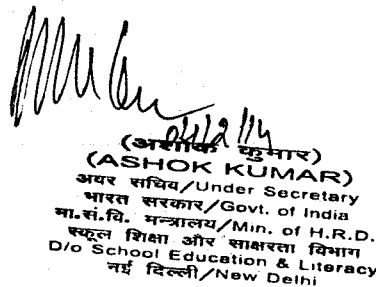 04/2/14
(अशोक कुमार)
(ASHOK KUMAR)
अवर सचिव/Under Secretary
भारत सरकार/Govt. of India
मा.सं.वि. मन्त्रालय/Min. of H.R.D.
स्कूल शिक्षा और साक्षरता विभाग
D/o School Education & Literacy
नई दिल्ली/New Delhi